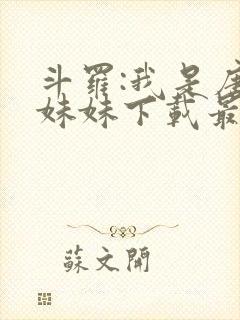 斗羅:我是
妹妹下載最
蘇文開